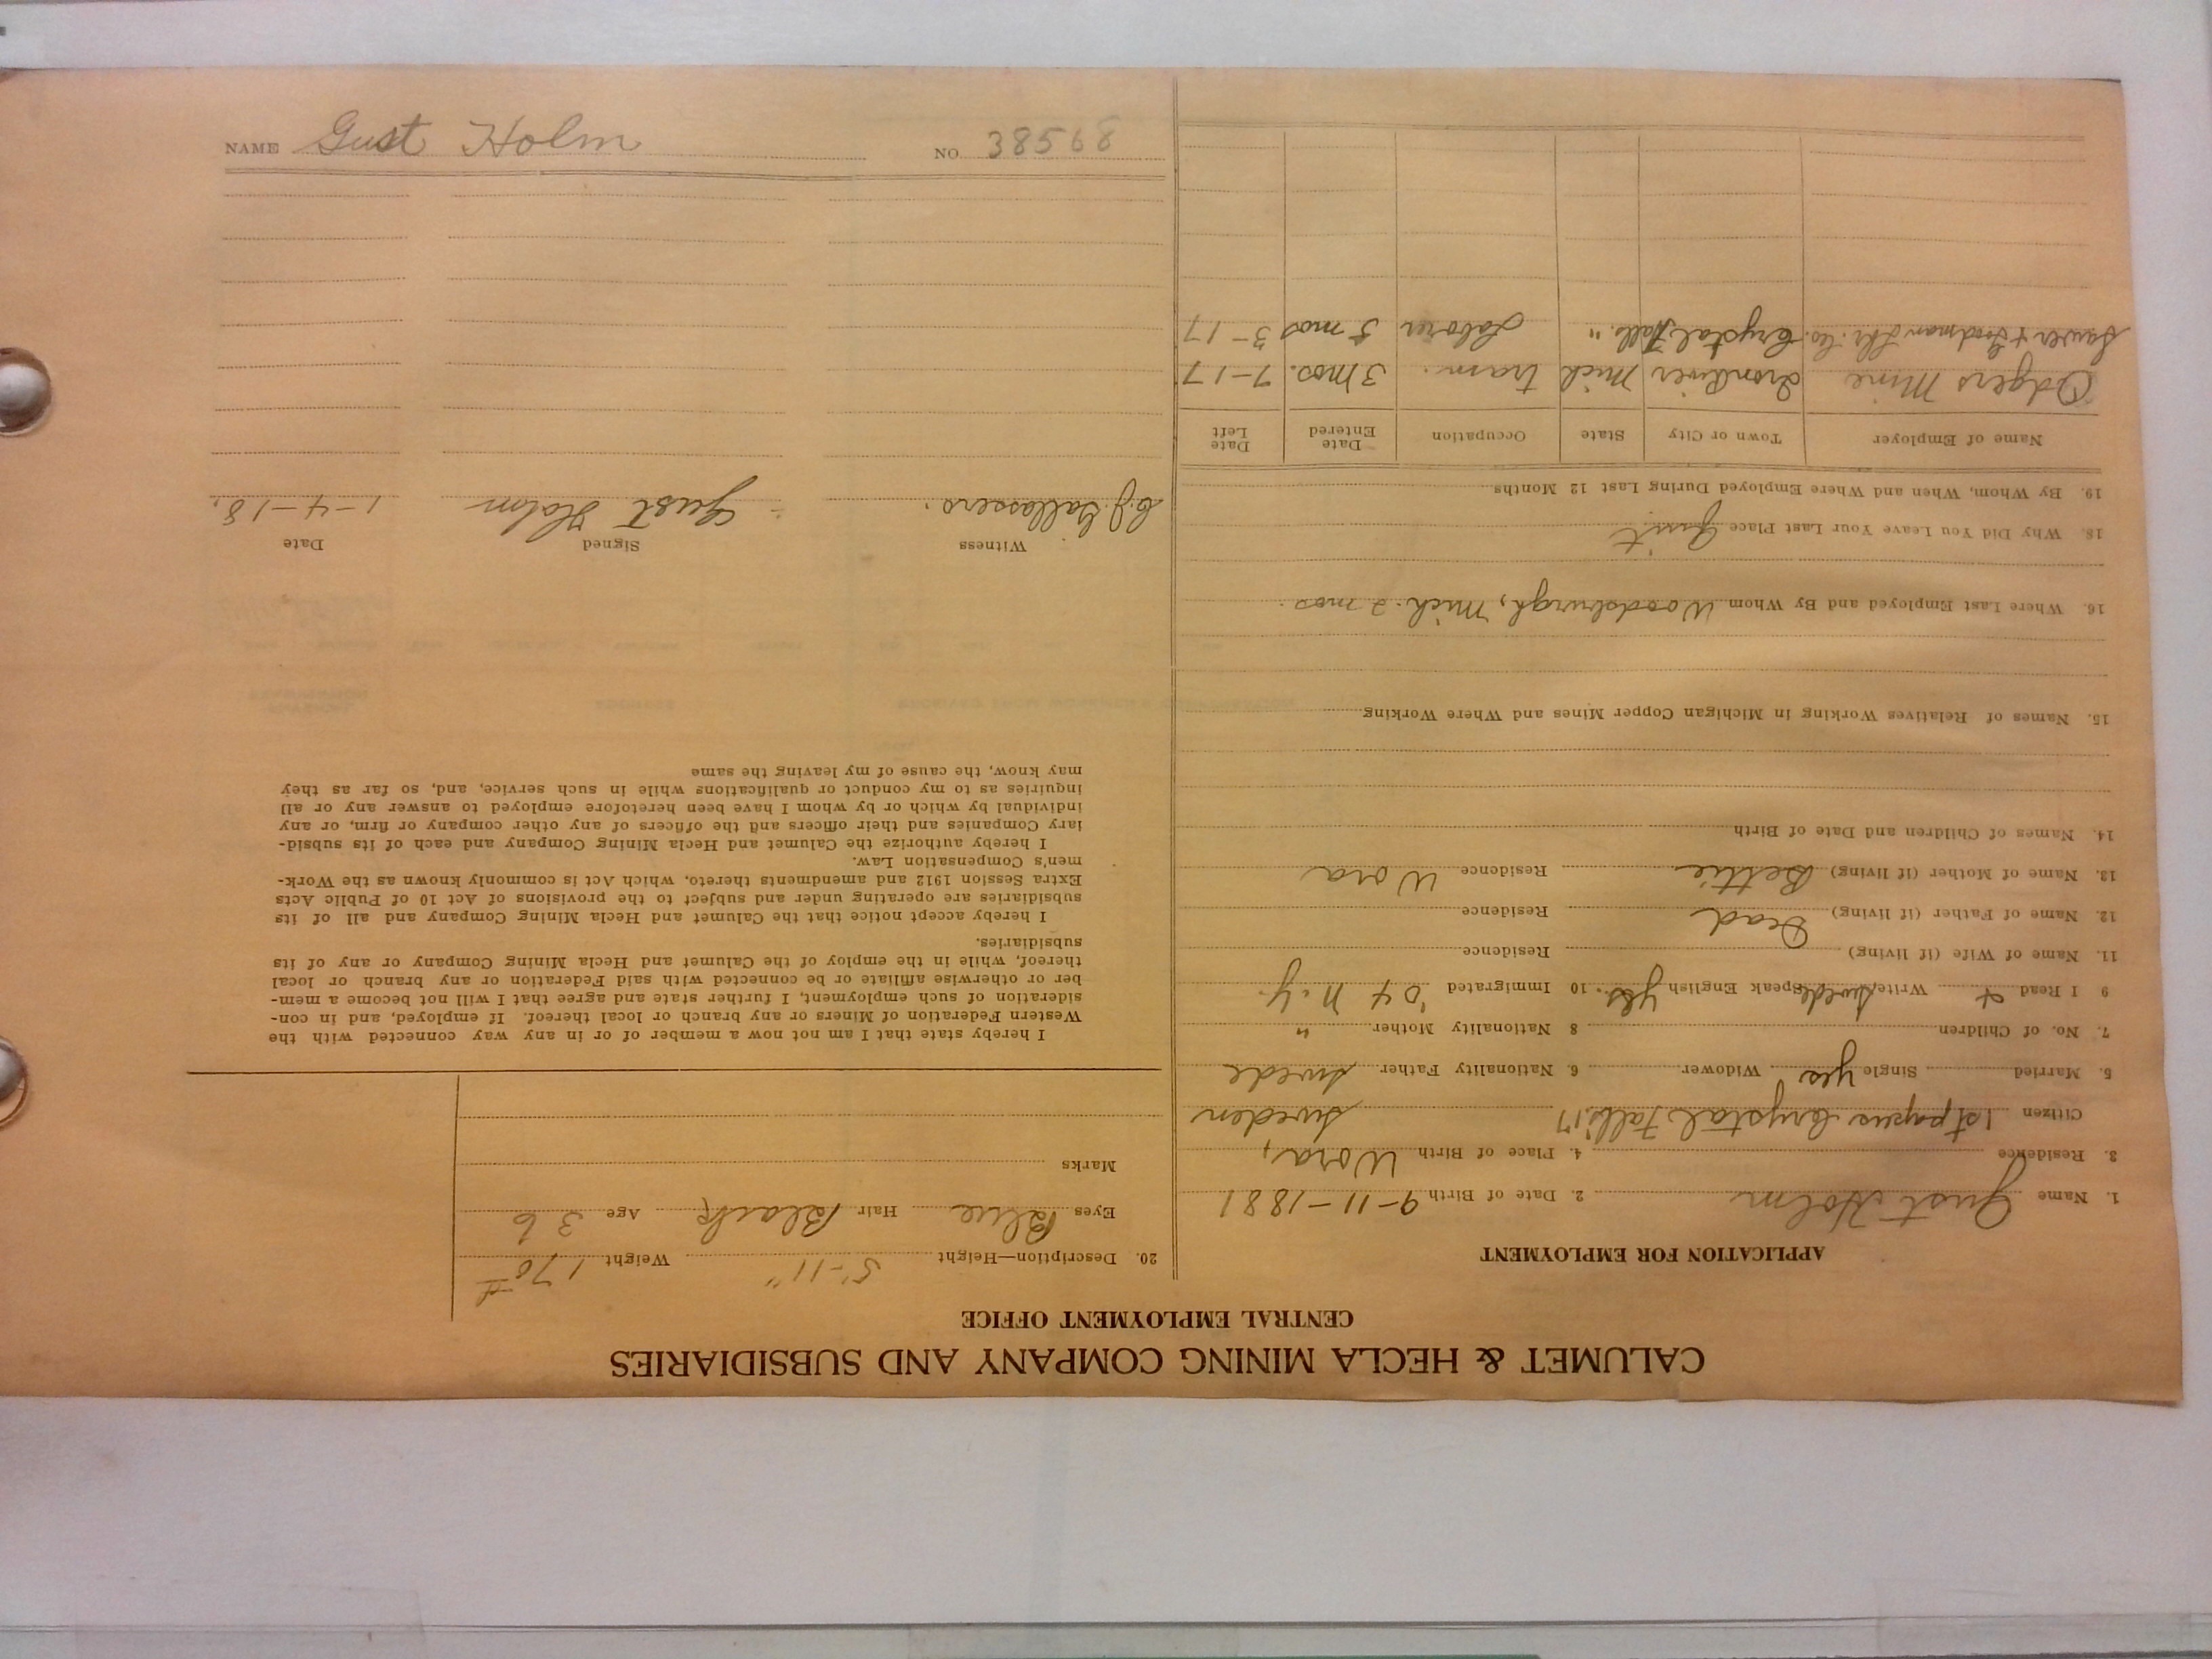 CALUMET & HECLA MINING COMPANY AND SUBSIDIARIES
CENTRAL EMPLOYMENT OFFICE
APPLICATION FOR EMPLOYMENT
1. Name Gust Holm 2. Date of Birth 9-11-1881
3. Residence 4. Place of Birth Wora,
Citizen 1st papers Crystal Falls '17 Sweden
5. Married Single yes Widower 6. Nationality Father Swede
7. No. of Children 8 Nationality Mother "
9 I Read + Write Swede Speak English Yes. 10 Immigrated '04 N.Y.
11. Name of Wife (if living) Residence
12. Name of Father (if living) Dead Residence
13. Name of Mother (if living) Bettie Residence Wora
14. Names of Children and Date of Birth
15. Names of Relatives Working in Michigan Copper Mines and Where Working
16. Where Last Employed and By Whom Woodsburgh, Mich. 2 mos.
18. Why Did You Leave Your Last Place Quit
19. By Whom, When and Where Employed During Last 12 Months
Name of Employer Town or City State Occupation Date Entered Date Left
Odgers Mine Iron River Mich tram. 3 mos. 7-17
Sawer + Goodman Lbr. Co. Crystal Falls " Laborer 5 mos 3-17
20. Description—Height 5'-11" Weight 170#
Eyes Blue Hair Black Age 36
Marks
I hereby state that I am not now a member of or in any way connected with the
Western Federation of Miners or any branch or local thereof. If employed, and in con-
sideration of such employment, I further state and agree that I will not become a mem-
ber or otherwise affiliate or be connected with said Federation or any branch or local
thereof, while in the employ of the Calumet and Hecla Mining Company or any of its
subsidiaries.
I hereby accept notice that the Calumet and Hecla Mining Company and all of its
subsidiaries are operating under and subject to the provisions of Act 10 of Public Acts
Extra Session 1912 and amendments thereto, which Act is commonly known as the Work-
men's Compensation Law.
I hereby authorize the Calumet and Hecla Mining Company and each of its subsid-
iary Companies and their officers and the officers of any other company or firm, or any
individual by which or by whom I have been heretofore employed to answer any or all
inquiries as to my conduct or qualifications while in such service, and, so far as they
may know, the cause of my leaving the same
Witness Signed Date
C.J. Gust Holm 1-4-18.
NAME Gust Holm NO. 38568